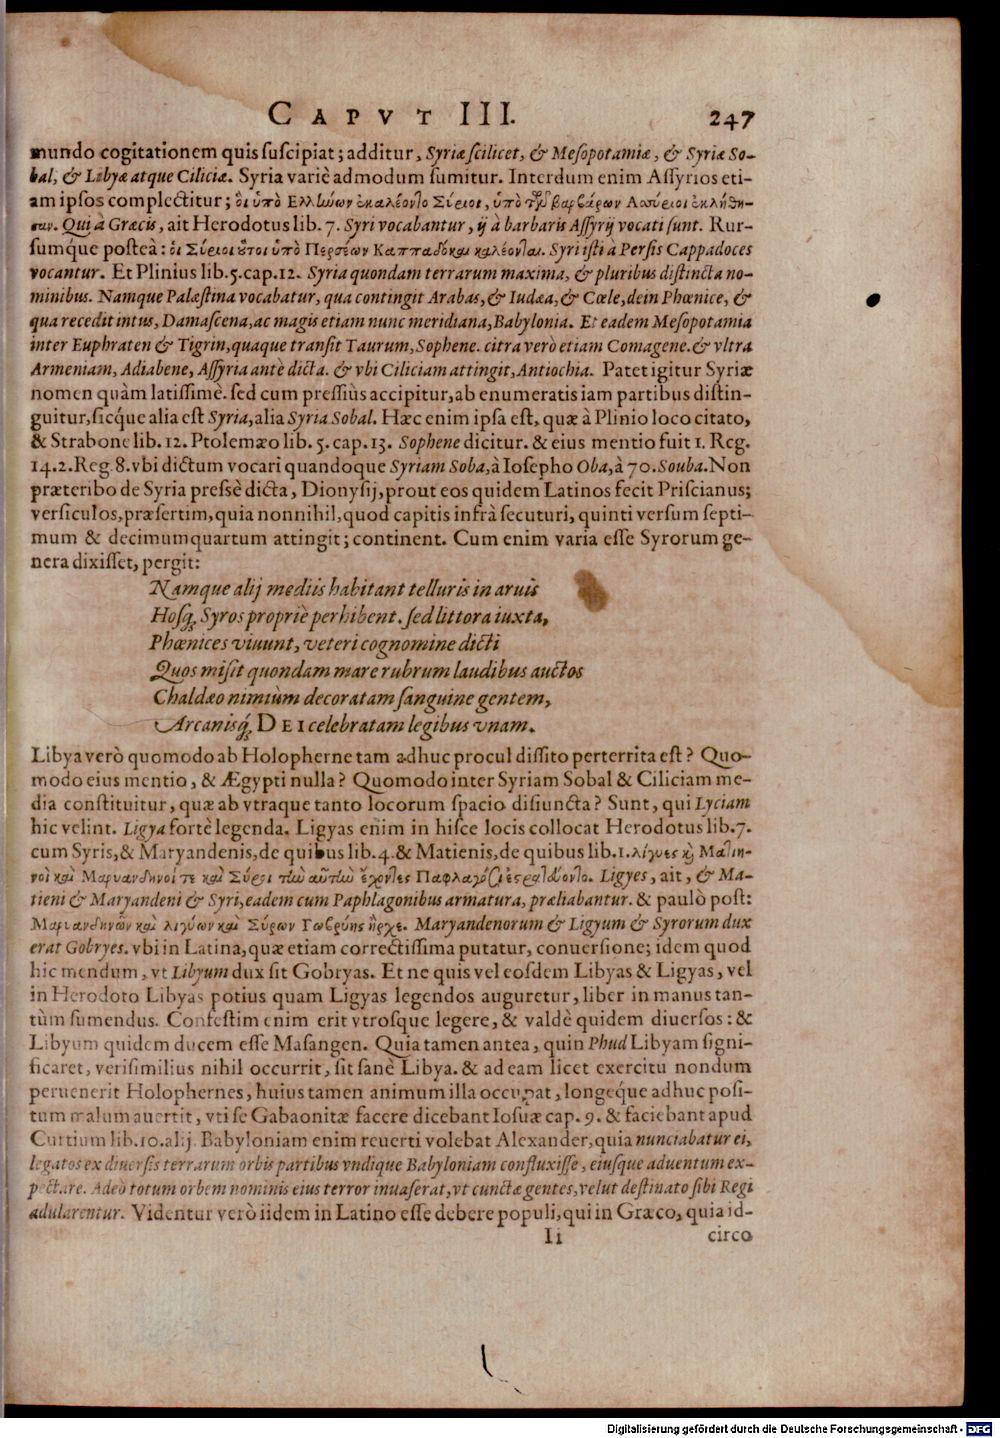 CAPVT III. 247
mundo cogitationem quis suscipiat; additur, Syriæ scilicet, & Mesopotamiæ, & Syriæ So-
bal, & Libyæ atque Ciliciæ. Syria variè admodum sumitur. Interdum enim Assyrios eti-
am ipsos complectitur; οἱ ὑπὸ Ελλήνων ἐκαλέοντο Σύριοι, ὑπὸ τῶν βαρβάρων Ασσύριοι ἐκλήθη-
σαν. Qui à Græcis, ait Herodotus lib. 7. Syri vocabantur, ij à barbaris Assyrij vocati sunt. Rur-
sumq́ue posteà: οἱ Σύριοι οὗτοι ὑπὸ Περσέων Καππαδόκαι καλέονται. Syri isti à Persis Cappadoces
vocantur. Et Plinius lib. 5. cap. 12. Syria quondam terrarum maxima, & pluribus distincta no-
minibus. Namque Palæstina vocabatur, qua contingit Arabas, & Iudæa, & Cœle, dein Phœnice, &
qua recedit intus, Damascena, ac magis etiam nunc meridiana, Babylonia. Et eadem Mesopotamia
inter Euphraten & Tigrin, quaque transit Taurum, Sophene. citra verò etiam Comagene. & vltra
Armeniam, Adiabene, Assyria antè dicta. & vbi Ciliciam attingit, Antiochia. Patet igitur Syriæ
nomen quàm latissimè. sed cum pressiùs accipitur, ab enumeratis iam partibus distin-
guitur, sicq́ue alia est Syria, alia Syria Sobal. Hæc enim ipsa est, quæ à Plinio loco citato,
& Strabone lib. 12. Ptolemæo lib. 5. cap. 13. Sophene dicitur. & eius mentio fuit 1. Reg.
14. 2. Reg. 8. vbi dictum vocari quandoque Syriam Soba, à Iosepho Oba, à 70. Souba. Non
præteribo de Syria pressè dicta, Dionysij, prout eos quidem Latinos fecit Priscianus;
versiculos, præsertim, quia nonnihil, quod capitis infrà secuturi, quinti versum septi-
mum & decimumquartum attingit; continent. Cum enim varia esse Syrorum ge-
nera dixisset, pergit:
Namque alij mediis habitant telluris in aruis
Hosq́; Syros propriè perhibent. sed littora iuxta,
Phœnices viuunt, veteri cognomine dicti
Quos misit quondam mare rubrum laudibus auctos
Chaldæo nimiùm decoratam sanguine gentem,
Arcanisq́; DEI celebratam legibus vnam.
Libya verò quomodo ab Holopherne tam adhuc procul dissito perterrita est? Quo-
modo eius mentio, & Ægypti nulla? Quomodo inter Syriam Sobal & Ciliciam me-
dia constituitur, quæ ab vtraque tanto locorum spacio disiuncta? Sunt, qui Lyciam
hic velint. Ligya fortè legenda. Ligyas enim in hisce locis collocat Herodotus lib. 7.
cum Syris, & Maryandenis, de quibus lib. 4. & Matienis, de quibus lib. 1. λίγυες καὶ Ματιη-
νοὶ καὶ Μαρυανδηνοί τε καὶ Σύροι τὴν αὐτὴν ἔχοντες Παφλαγόσι ἐστρατεύοντο. Ligyes, ait, & Ma-
tieni & Maryandeni & Syri, eadem cum Paphlagonibus armatura, præliabantur. & paulò pòst:
Μαριανδηνῶν καὶ λιγύων καὶ Σύρων Γωβρύης ἦρχε. Maryandenorum & Ligyum & Syrorum dux
erat Gobryes. vbi in Latina, quæ etiam correctissima putatur, conuersione; idem quod
hic mendum, vt Libyum dux sit Gobryas. Et ne quis vel eosdem Libyas & Ligyas, vel
in Herodoto Libyas potius quam Ligyas legendos auguretur, liber in manus tan-
tùm sumendus. Confestim enim erit vtrosque legere, & valdè quidem diuersos: &
Libyum quidem ducem esse Masangen. Quia tamen antea, quin Phud Libyam signi-
ficaret, verisimilius nihil occurrit, sit sanè Libya. & ad eam licet exercitu nondum
peruenerit Holophernes, huius tamen animum illa occupat, longeq́ue adhuc posi-
tum malum auertit, vti se Gabaonitæ facere dicebant Iosuæ cap. 9. & faciebant apud
Curtium lib. 10. alij. Babyloniam enim reuerti volebat Alexander, quia nunciabatur ei,
legatos ex diuersis terrarum orbis partibus vndique Babyloniam confluxisse, eiusque aduentum ex-
pectare. Adeò totum orbem nominis eius terror inuaserat, vt cunctæ gentes, velut destinato sibi Regi
adularentur. Videntur verò iidem in Latino esse debere populi, qui in Græco, quia id-
Ii circo
Digitalisierung gefördert durch die Deutsche Forschungsgemeinschaft - DFG